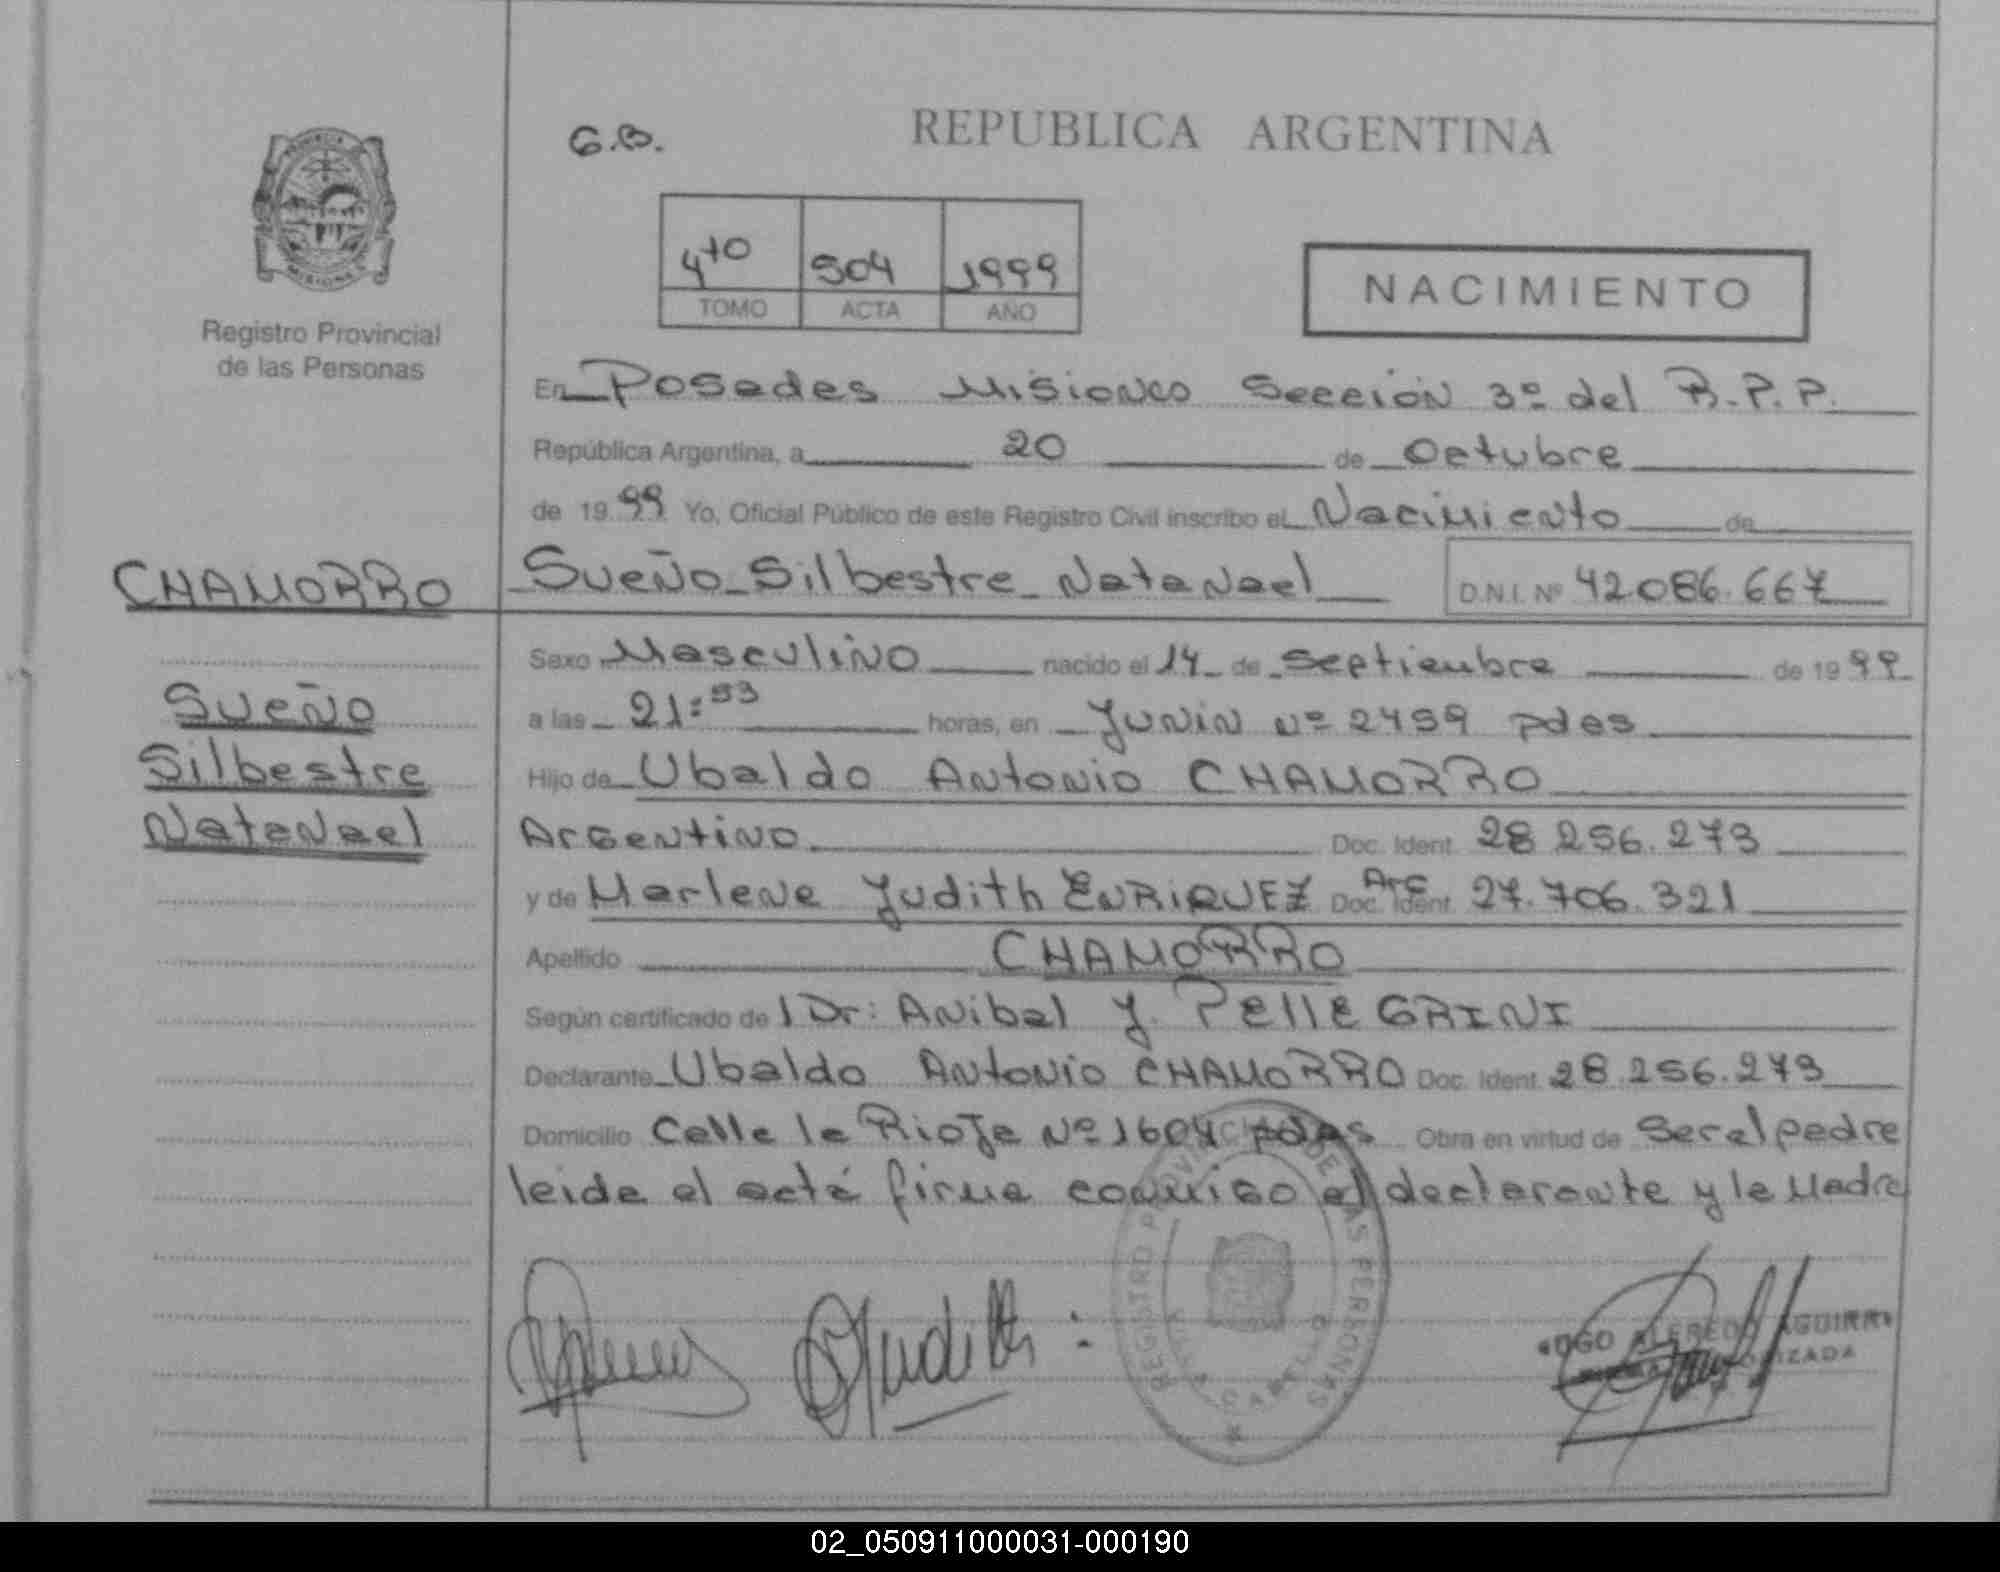 REPUBLICA ARGENTINA
G.B.
4to 504 1999
TOMO ACTA AÑO
NACIMIENTO
Registro Provincial
de las Personas
En Posadas Misiones Sección 3º del R.P.P.
República Argentina, a 20 de Octubre
de 1999 Yo, Oficial Público de este Registro Civil inscribo el Nacimiento de
CHAMORRO
Sueño Silbestre Natanael D.N.I. Nº 42086.667
Sueño
Silbestre
Natanael
Sexo Masculino nacido el 14 de Septiembre de 1999
a las 21:53 horas, en Junin Nº 2459 pdas
Hijo de Ubaldo Antonio CHAMORRO
Argentino Doc. Ident. 28 256.273
y de Marlene Judith ENRIQUEZ Arg Doc. Ident. 27.706.321
Apellido CHAMORRO
Según certificado de l Dr: Anibal J. PellEGRINI
Declarante Ubaldo Antonio CHAMORRO Doc. Ident. 28.256.273
Domicilio Calle la Rioja Nº 1604 pdas Obra en virtud de Ser el padre
leida el acta firma conmigo el declarante y la Madre
Judith
REGISTRO PROVINCIAL DE LAS PERSONAS
ALFREDO AGUIRRE
02_050911000031-000190